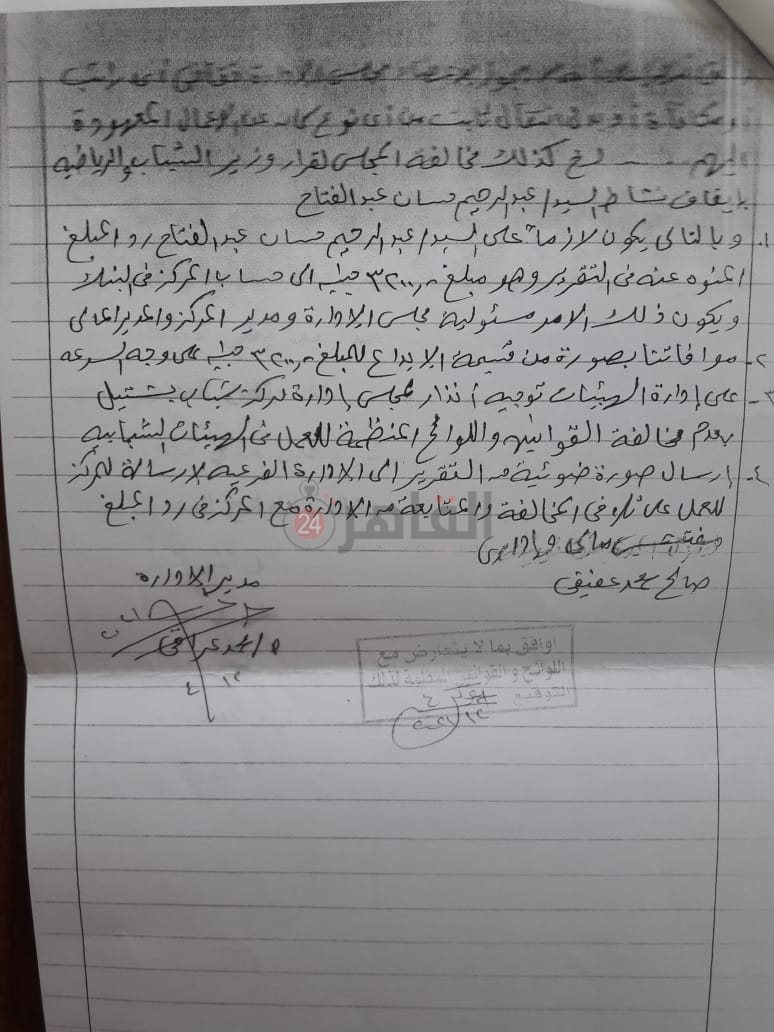 أو مكافأة أو بدل انتقال ثابت من أى نوع كان عن الأعمال المعهودة
إليهم ...... الخ كذلك مخالفة المجلس لقرار وزير الشباب والرياضيه
بإيقاف نشاط السيد / عبد الرحيم حسان عبد الفتاح
١- وبالتالى يكون لازماً على السيد / عبد الرحيم حسان عبد الفتاح رد المبلغ
المنوه عنه فى التقرير وهو مبلغ ٣٢٠٠,٠ جنيه الى حساب المركز فى البنك
ويكون ذلك الامر مسئولية مجلس الإدارة ومدير المركز والمدير المالى
٢- موافاتنا بصورة من قسيمة الإيداع للمبلغ ٣٢٠٠,٠ جنيه على وجه السرعه
٣- على إدارة الهيئات توجيه إنذار لمجلس إدارة مركز شباب بشتيل
بعدم مخالفة القوانين واللوائح المنظمة للعمل فى الهيئات الشبابيه
٤- إرسال صورة ضوئية من التقرير الى الادارة الفرعيه لارساله للمركز
للعمل على تلافى المخالفة والمتابعة من الادارة مع المركز فى رد المبلغ
القاهرة 24
مفتش مالى وإدارى
صالح محمد عفيفى
مدير الادارة
أوافق بما لا يتعارض مع
اللوائح و القوانين المنظمة لذلك
التوقيع